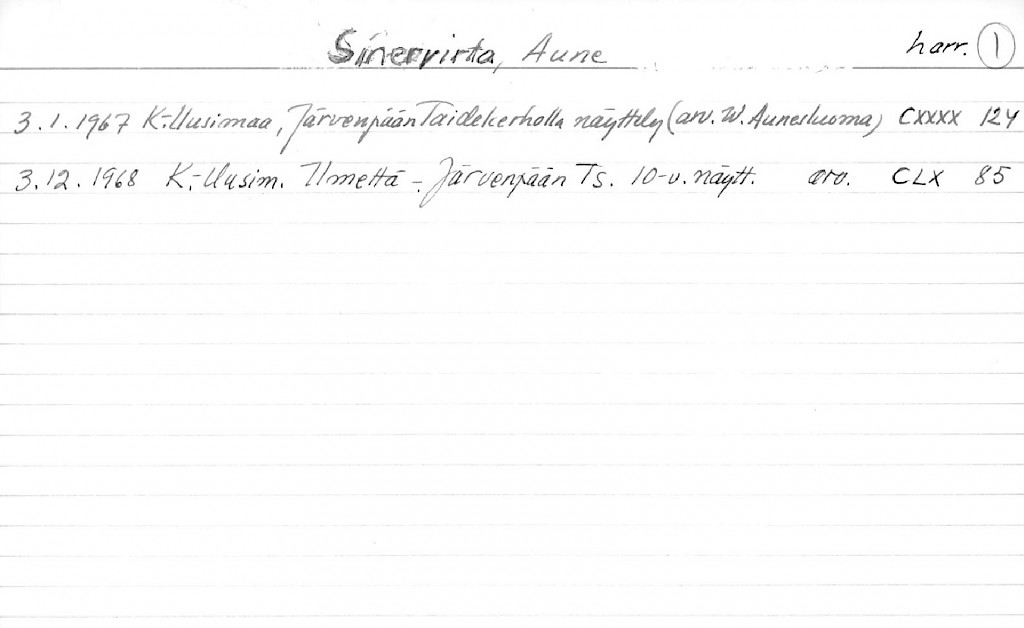 Sinervirta, Aune harr. 1
3.1.1967 K.-Uusimaa, Järvenpään Taidekerholla näyttely (arv. W. Aunesluoma) CXXXX 124
3.12.1968 K.-Uusim. Ilmettä - Järvenpään Ts. 10-v. näytt. arv. CLX 85